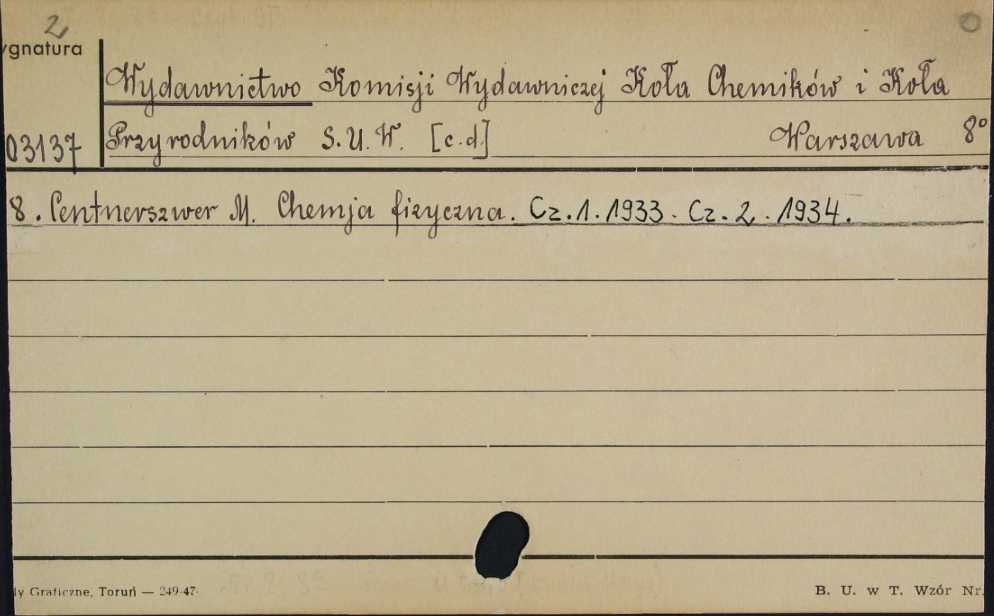 2
ygnatura
Wydawnictwo Komisji Wydawniczej Koła Chemików i Koła
03137 Przyrodników S.U.W. [c.d.] Warszawa 8°
8. Centnerszwer M. Chemja fizyczna. Cz.1.1933. Cz.2.1934.
ly Graficzne, Toruń — 249-47.
B. U. w T. Wzór Nr.